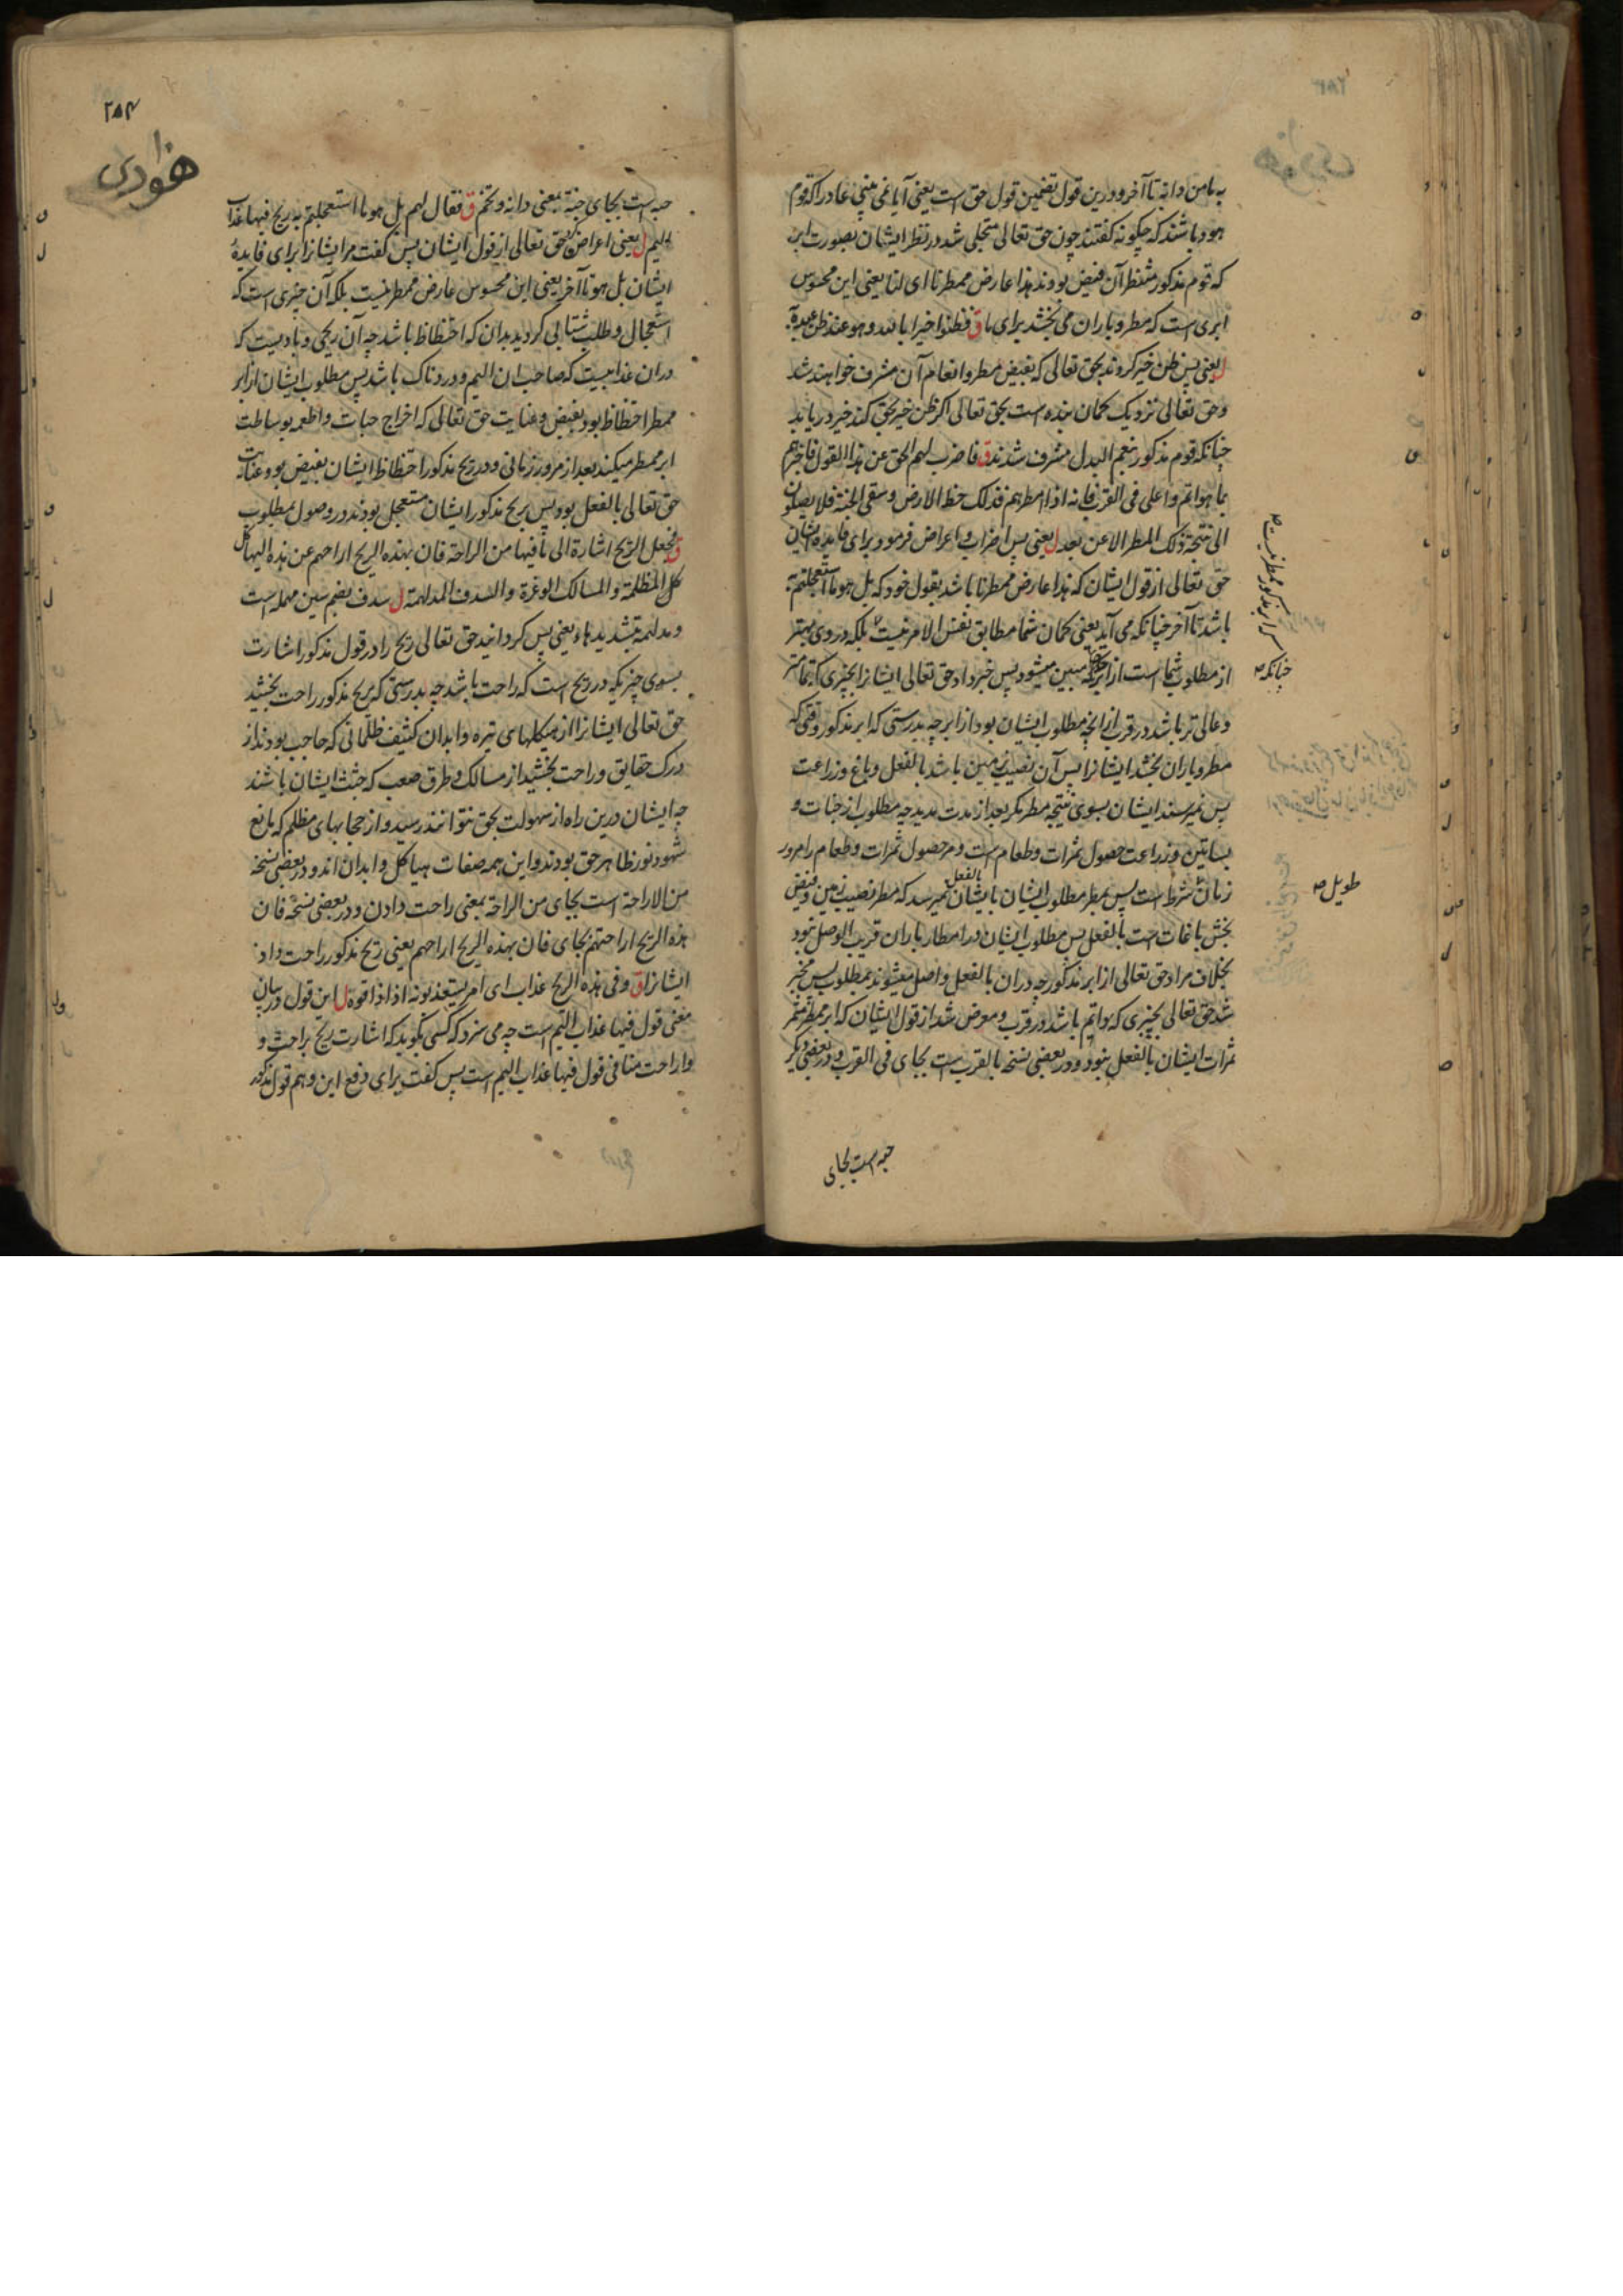 به ما من دابة تا آخر و درین قول تضمین قول حق است یعنی آیا نمی بینی عاد را که قوم
هود باشند که چگونه گفتند چون حق تعالی متجلی شد در نظر ایشان بصورت ابر
که قوم مذکور منتظر آن فیض بودند هذا عارض ممطرنا ای لنا یعنی این محسوس
ابری است که مطر و باران می بخشد برای ما ق فظنوا خیرا بالله و هو عند ظن عبده به
ل یعنی پس ظن خیر کردند بحق تعالی که بفیض مطر و انعام آن مشرف خواهند شد
و حق تعالی نزدیک گمان بنده است بحق تعالی اگر ظن خیر بحق کند خیر دریابد
چنانکه قوم مذکور بنعم البدل مشرف شدند ق فاضرب لهم الحق عن هذا القول فاخبرهم
بما هو اتم و اعلی فی القرب فانه اذا امطرهم فذلک حظ الارض و سقی الجنة فلا یصلون
الی نتیجة ذلک المطر الا عن بعد ل یعنی پس اضراب و اعراض فرمود برای فایده ایشان
حق تعالی از قول ایشان که هذا عارض ممطرنا باشد بقول خود که بل هو ما استعجلتم به
باشد تا آخر چنانکه می آید یعنی گمان شما مطابق نفس الامر نیست بلکه در وی بهتر
از مطلوب شما است از ابر چنانکه مبین میشود پس خبر داد حق تعالی ایشانرا بچیزی که تمامتر
و عالی تر باشد در قرب از انچه مطلوب ایشان بود از ابر چه بدرستی که ابر مذکور وقتی که
مطر و باران بخشد ایشانرا پس آن نصیب زمین باشد بالفعل و باغ و زراعت
پس نمیرسند ایشان بسوی نتیجه مطر مگر بعد از مدت مدید چه مطلوب از جنات و
بساتین و زراعت حصول ثمرات و طعام است و مر حصول ثمرات و طعام را مرور
زمان شرط است پس بمطر مطلوب ایشان بایشان بالفعل نمیرسد که مطر نصیب زمین و فیض
بخش باغات است بالفعل پس مطلوب ایشان در امطار باران قریب الوصل نبود
بخلاف مراد حق تعالی از ابر مذکور چه دران بالفعل واصل میشوند بمطلوب پس مخبر
شد حق تعالی بچیزی که اتم باشد در قرب و معرض شد از قول ایشان که ابر ممطر مثمر
ثمرات ایشان بالفعل نبود و در بعضی نسخه بالقرب است بجای فی القرب و در بعضی دیگر
حبه است بجای
پس ابر مذکور ممطر نیست صح
چنانکه صح
طویل صح
۲۸۴
هودی
حبه است بجای جنة بمعنی دانه و تخم ق فقال لهم بل هو ما استعجلتم به ریح فیها عذاب
الیم ل یعنی اعراض کرد حق تعالی از قول ایشان پس گفت مر ایشانرا برای فایدهٔ
ایشان بل هو تا آخر یعنی این محسوس عارض ممطر نیست بلکه آن چیزی است که
استعجال و طلب شتابی کردید بدان که احتظاظ باشد چه آن ریحی و بادیست که
دران عذابیست که صاحب ان الیم و دردناک باشد پس مطلوب ایشان از ابر
ممطر احتظاظ بود بفیض و عنایت حق تعالی که اخراج حبات و اطعمه بوساطت
ابر ممطر میکند بعد از مرور زمانی و در ریح مذکور احتظاظ ایشان بفیض بود و عنایت
حق تعالی بالفعل بود پس بریح مذکور ایشان مستعجل بودند در وصول بمطلوب
ق فجعل الریح اشارة الی ما فیها من الراحة فان بهذه الریح اراحهم عن هذه الهیاکل
کل المظلمة و المسالک الوعرة و السدف المدلهمة ل سدف بضم سین مهمله است
و مدلهمة بتشدید هاء یعنی پس گردانید حق تعالی ریح را در قول مذکور اشارت
بسوی چیزیکه در ریح است که راحت باشد چه بدرستی که بریح مذکور راحت بخشید
حق تعالی ایشانرا از هیکلهای تیره و ابدان کثیف ظلمانی که حاجب بودند از
درک حقایق و راحت بخشید از مسالک و طرق صعب که جثث ایشان باشند
چه ایشان درین راه از سهولت بحق نتوانند رسید و از حجابهای مظلم که مانع
شهود نور ظاهر حق بودند و این همه صفات هیاکل و ابدان اند و در بعضی نسخه
من الاراحة است بجای من الراحة بمعنی راحت دادن و در بعضی نسخه فان
هذه الریح اراحتهم بجای فان بهذه الریح اراحهم یعنی ریح مذکور راحت داد
ایشانرا ق و فی هذه الریح عذاب ای امر یستعذبونه اذا ذاقوه ل این قول در بیان
معنی قول فیها عذاب الیم است چه می سزد که کسی بگوید که اشارت ریح براحت و
و اراحت منافی قول فیها عذاب الیم است پس گفت برای دفع این وهم قول مذکور